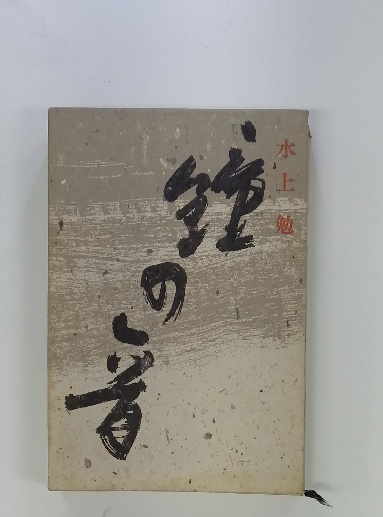 水上勉
鐘の音